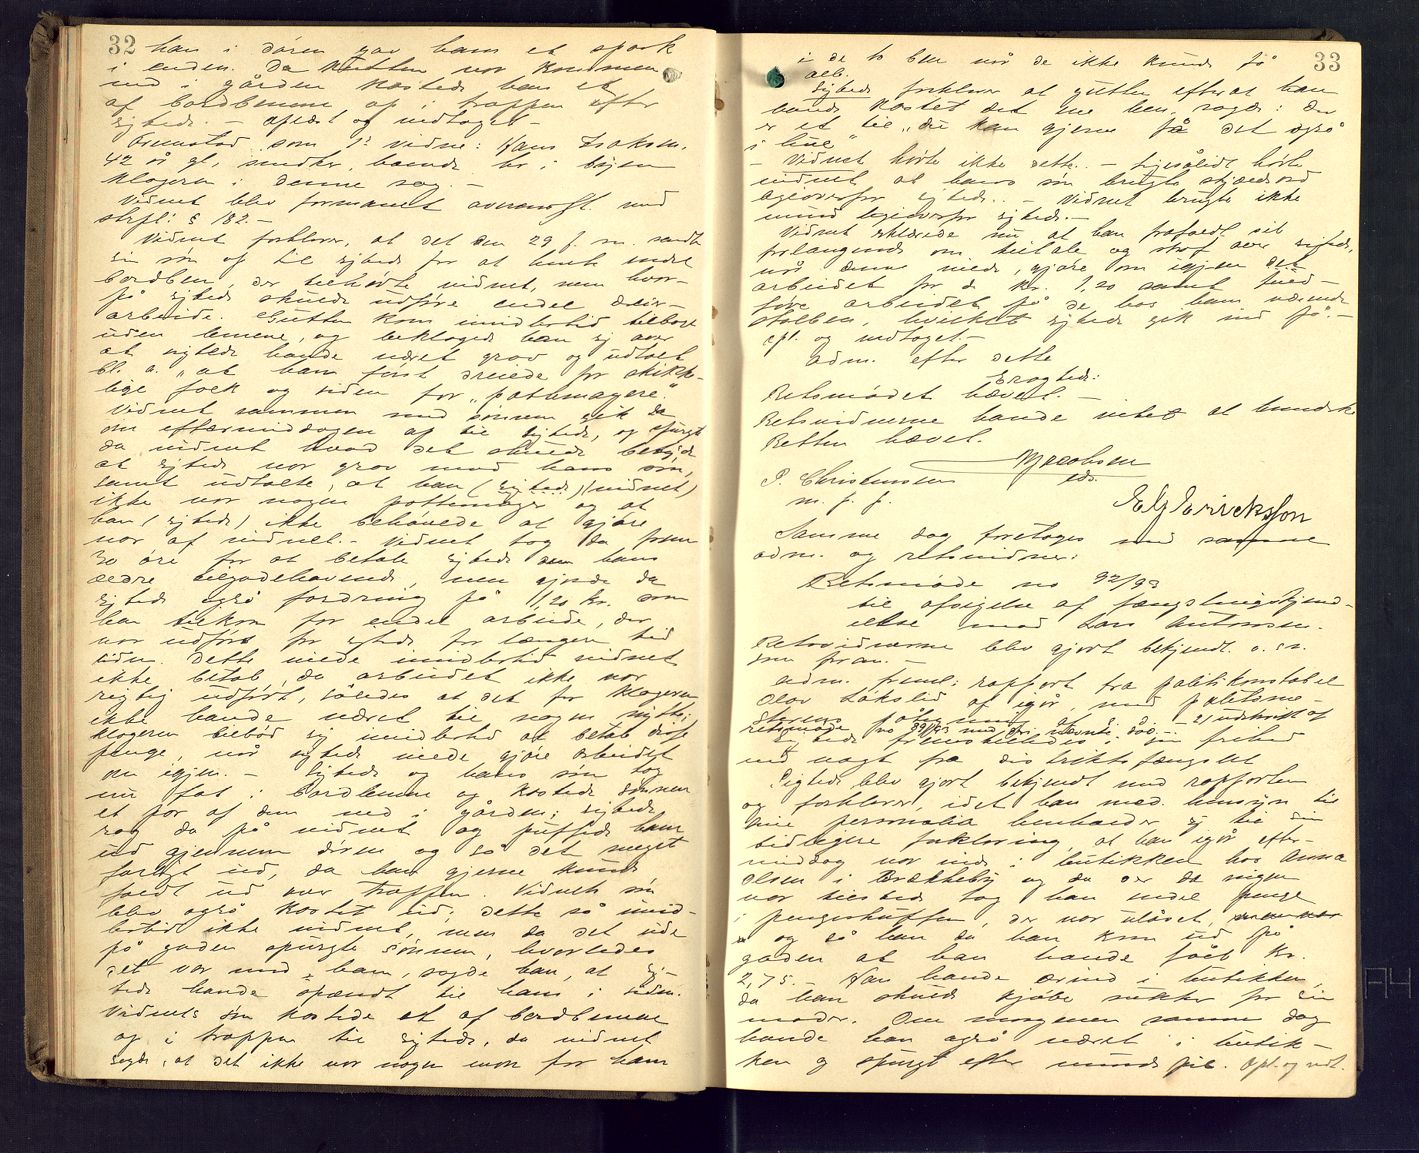 32
han i døren gav ham et spark
i enden. Da gutten var kommen
ned i gården kastede han et
af bordbenene op i trappen efter
sigtede – oplæst og vedtaget –
Fremstod som 1ste vidne: Hans Isaksen,
42 år gl., snedker, bande br. i byen
klageren i denne sag. –
Vidnet blev formanet overensst. med
strfl. § 182. –
Vidnet forklarer, at det den 29 f. m. sendte
sin søn op til sigtede for at hente endel
bordben, der tilhørte vidnet, men hvor-
på sigtede skulde udføre endel dreier-
arbeide. Gutten kom imidlertid tilbage
uden benene, og beklagede han sig over
at sigtede havde været grov og udtalt
bl. a. „at han først dreiede for skikke-
lige folk og siden for „pottemagere"
Vidnet sammen med sønnen gik da
om eftermiddagen op til sigtede, og spurgte
da vidnet hvad det skulde betyde
at sigtede var grov mod hans søn,
samt udtalte, at han (sigtede) (vidnet)
ikke var nogen pottemager og at
han (sigtede) ikke behøvede at gjøre
nar af vidnet. – Vidnet tog da frem
30 øre for at betale sigtede den hans
ældre tilgodehavende, men gjorde da
sigtede også fordring på 1,20 kr. som
han tilkom for endel arbeide, der
var udført for sigtede for længere tid
siden. Dette vilde imidlertid vidnet
ikke betale, da arbeidet ikke var
rigtig udført, således at det for klageren
ikke havde været til nogen nytte;
klageren tilbød sig imidlertid at betale disse
penge, når sigtede vilde gjøre arbeidet
om igjen. – Sigtede og hans søn tog
nu fat i bordbenene og kastede sønnen
et par af dem ned i gården; sigtede
tog da på vidnet og puffede ham
ud gjennem døren og så det meget
farligt ud, da han gjerne kunde
faldt ud over trappen. Vidnets søn
blev også kastet ud; dette så imid-
lertid ikke vidnet, men da det ude
på gaden spurgte sønnen, hvorledes
det var med ham, sagde han, at sig-
tede havde spændt til ham i siden.
Vidnets søn kastede et af bordbenene
op i trappen til sigtede, da vidnet
sagde, at det ikke var nogen mon for ham
33
i de to ben når de ikke kunde få
alle.
Sigtede forklarer at gutten efterat han
havde kastet det ene ben, sagde: „Der
er et til", „du kan gjerne få det også
i live"
– Vidnet hørte ikke dette. – Ligesålidt hørte
vidnet at hans søn brugte skjældsord
ligeoverfor sigtede. – Vidnet brugte ikke
mund ligeoverfor sigtede. –
Vidnet erklærede nu at han frafaldt sit
forlangende om tiltale og straf over sigtede,
når denne vilde gjøre om igjen det
arbeidet for de kr. 1,20 samt fuld-
føre arbeidet på de hos ham værende
stolben, hvilket sigtede gik ind på. –
opl. og vedtaget. –
adm. efter dette
Eragtede:
Retsmødet hævet. –
Retsvidnerne havde intet at bemærke
Retten hævet.
Jacobsen
cst.
P. Christensen
m. f. p.
E G Erickson
Samme dag foretoges med samme
adm. og retsvidner:
Retsmøde no 92/93
til afsigelse af fængslingskjend-
else mod Lars Antonsen.
Retsvidnerne blev gjort bekjendt o. s. v.
som foran. –
adm. freml.: rapport fra politikonstabel
Olav Løkslid af igår, med politime-
sterens påtegning af s. d. – 2) udskrift af
retsmøde no 89/93 med deri nævnte dok. –
Sigtede fremstilledes i sin frihed
med vagt fra distriktsfængslet
Sigtede blev gjort bekjendt med rapporten
og forklarer, idet han med hensyn til
sine personalia henholder sig til sin
tidligere forklaring, at han igår efter-
middag var inde i butikken hos Anna
Olsen i Brækkeby og da der da ingen
var tilstede tog han endel penge
i pengeskuffen, der var ulåset,
og så han da han kom ud på
gaden at han havde fået kr.
2,75. – Han havde ærind i butikken
da han skulde kjøbe sukker for sin
moder. Om morgenen samme dag
havde han også været i butik-
ken og spurgt efter mundspil. Opl. og vdt.